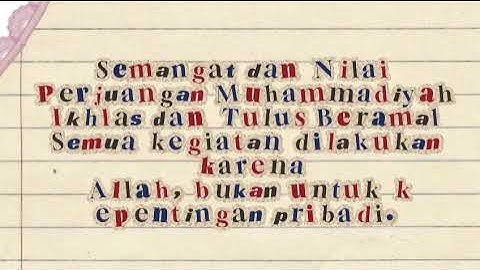 Semangat dan Nilai
Perjuangan Muhammadiyah
Ikhlas dan Tulus Beramal
Semua kegiatan dilakukan
karena
Allah, bukan untuk k
epentingan pribadi.